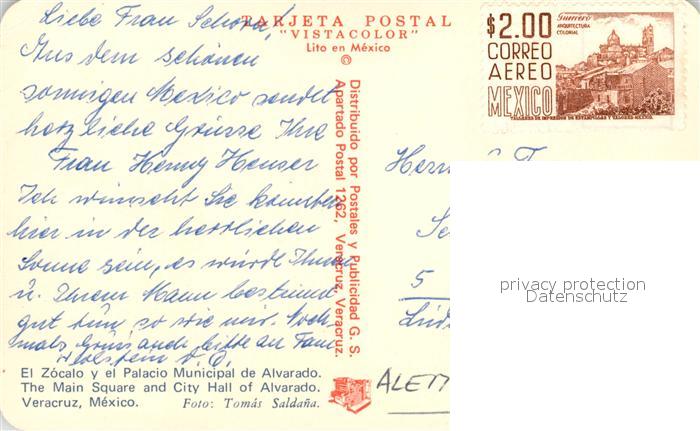 Liebe Frau
TARJETA POSTAL
"VISTACOLOR"
Lito en México
Aus dem schönen
sonnigen Mexico sendet
herzliche Grüsse Ihre
Frau Henny
Ich wünscht Sie könnten
hier in der herrlichen
Sonne sein, es würde Ihnen
u. Ihrem Mann bestimmt
gut tun so wie mir. Noch-
mals Grüsse auch bitte an Fam.
Distribuido por Postales y Publicidad G. S.
Apartado Postal 1262, Veracruz, Veracruz.
El Zócalo y el Palacio Municipal de Alvarado.
The Main Square and City Hall of Alvarado.
Veracruz, México. Foto: Tomás Saldaña.
$2.00
Guerrero
ARQUITECTURA
COLONIAL
CORREO
AEREO
MEXICO
TALLERES DE IMPRESION DE ESTAMPILLAS Y VALORES MEXICO.
5
privacy protection
Datenschutz